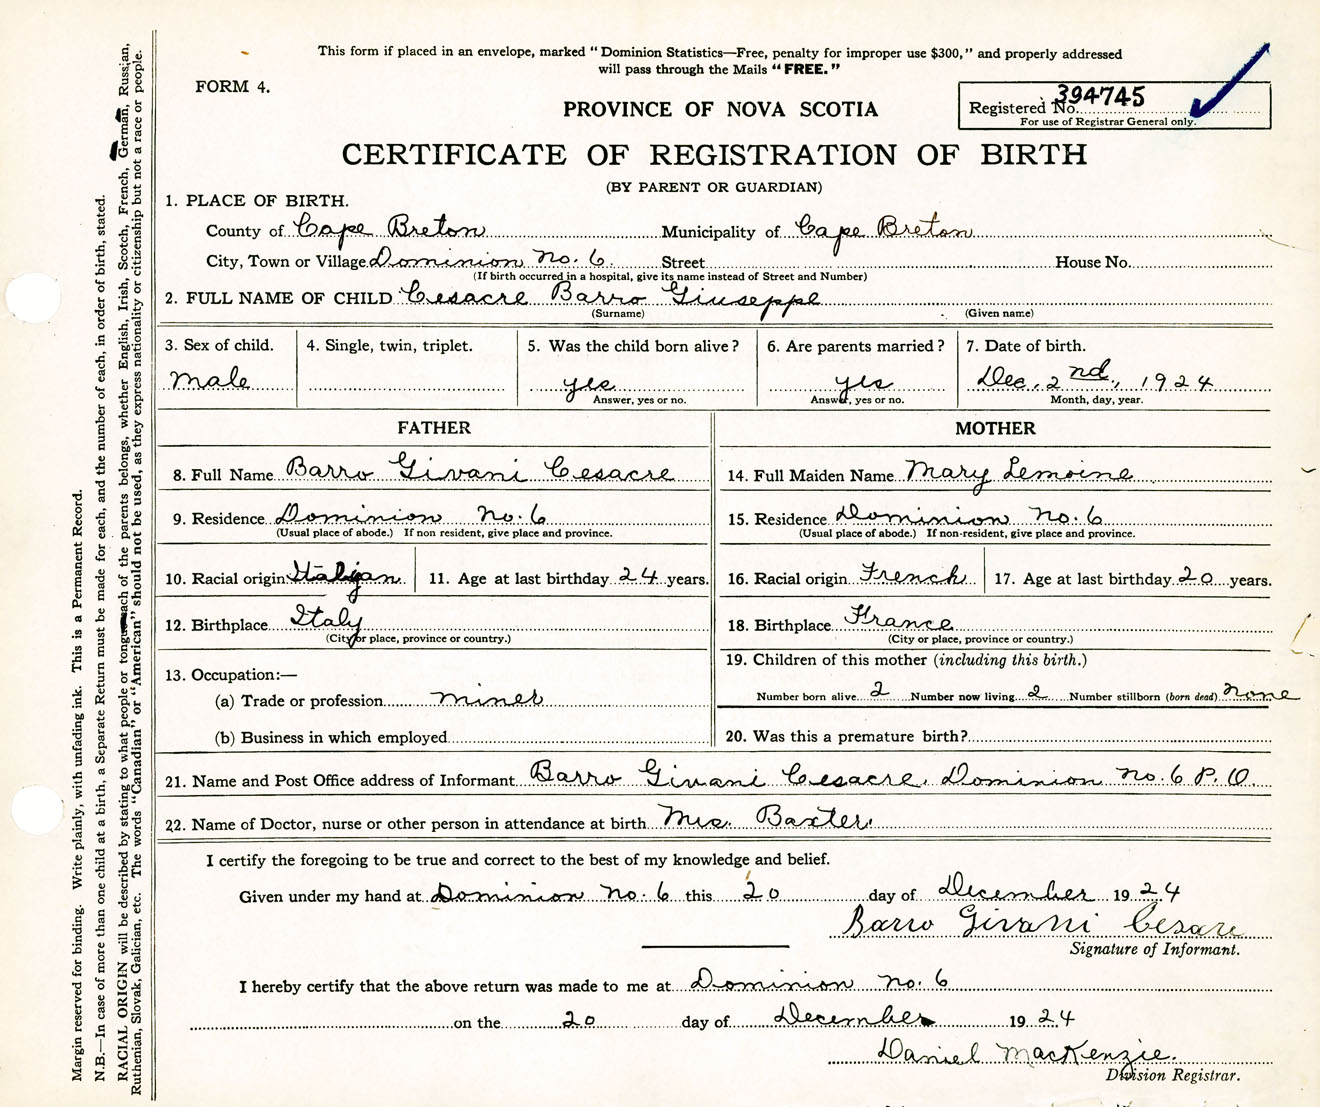 This form if placed in an envelope, marked "Dominion Statistics—Free, penalty for improper use $300," and properly addressed
will pass through the Mails "FREE."
FORM 4.
Registered No. 394745
For use of Registrar General only.
PROVINCE OF NOVA SCOTIA
CERTIFICATE OF REGISTRATION OF BIRTH
(BY PARENT OR GUARDIAN)
1. PLACE OF BIRTH.
County of Cape Breton Municipality of Cape Breton
City, Town or Village Dominion No. 6. Street House No.
(If birth occurred in a hospital, give its name instead of Street and Number)
2. FULL NAME OF CHILD Cesacre Barro Giuseppe
(Surname) (Given name)
3. Sex of child. 4. Single, twin, triplet. 5. Was the child born alive? 6. Are parents married? 7. Date of birth.
Male yes yes Dec. 2nd, 1924
Answer, yes or no. Answer, yes or no. Month, day, year.
FATHER MOTHER
8. Full Name Barro Givani Cesacre 14. Full Maiden Name Mary Lemoine
9. Residence Dominion No. 6 15. Residence Dominion No. 6
(Usual place of abode.) If non resident, give place and province. (Usual place of abode.) If non-resident, give place and province.
10. Racial origin Italian 11. Age at last birthday 24 years. 16. Racial origin French 17. Age at last birthday 20 years.
12. Birthplace Italy 18. Birthplace France
(City or place, province or country.) (City or place, province or country.)
13. Occupation:— 19. Children of this mother (including this birth.)
(a) Trade or profession miner Number born alive 2 Number now living 2 Number stillborn (born dead) none
(b) Business in which employed 20. Was this a premature birth?
21. Name and Post Office address of Informant Barro Givani Cesacre. Dominion No. 6 P. O.
22. Name of Doctor, nurse or other person in attendance at birth Mrs. Baxter.
I certify the foregoing to be true and correct to the best of my knowledge and belief.
Given under my hand at Dominion No. 6 this 20 day of December 1924
Barro Givani Cesare
Signature of Informant.
I hereby certify that the above return was made to me at Dominion No. 6
on the 20 day of December 1924
Daniel MacKenzie.
Division Registrar.
Margin reserved for binding. Write plainly, with unfading ink. This is a Permanent Record.
N.B.—In case of more than one child at a birth, a Separate Return must be made for each, and the number of each, in order of birth, stated.
RACIAL ORIGIN will be described by stating to what people or tongue each of the parents belongs, whether English, Irish, Scotch, French, German, Russian,
Ruthenian, Slovak, Galician, etc. The words "Canadian" or "American" should not be used, as they express nationality or citizenship but not a race or people.